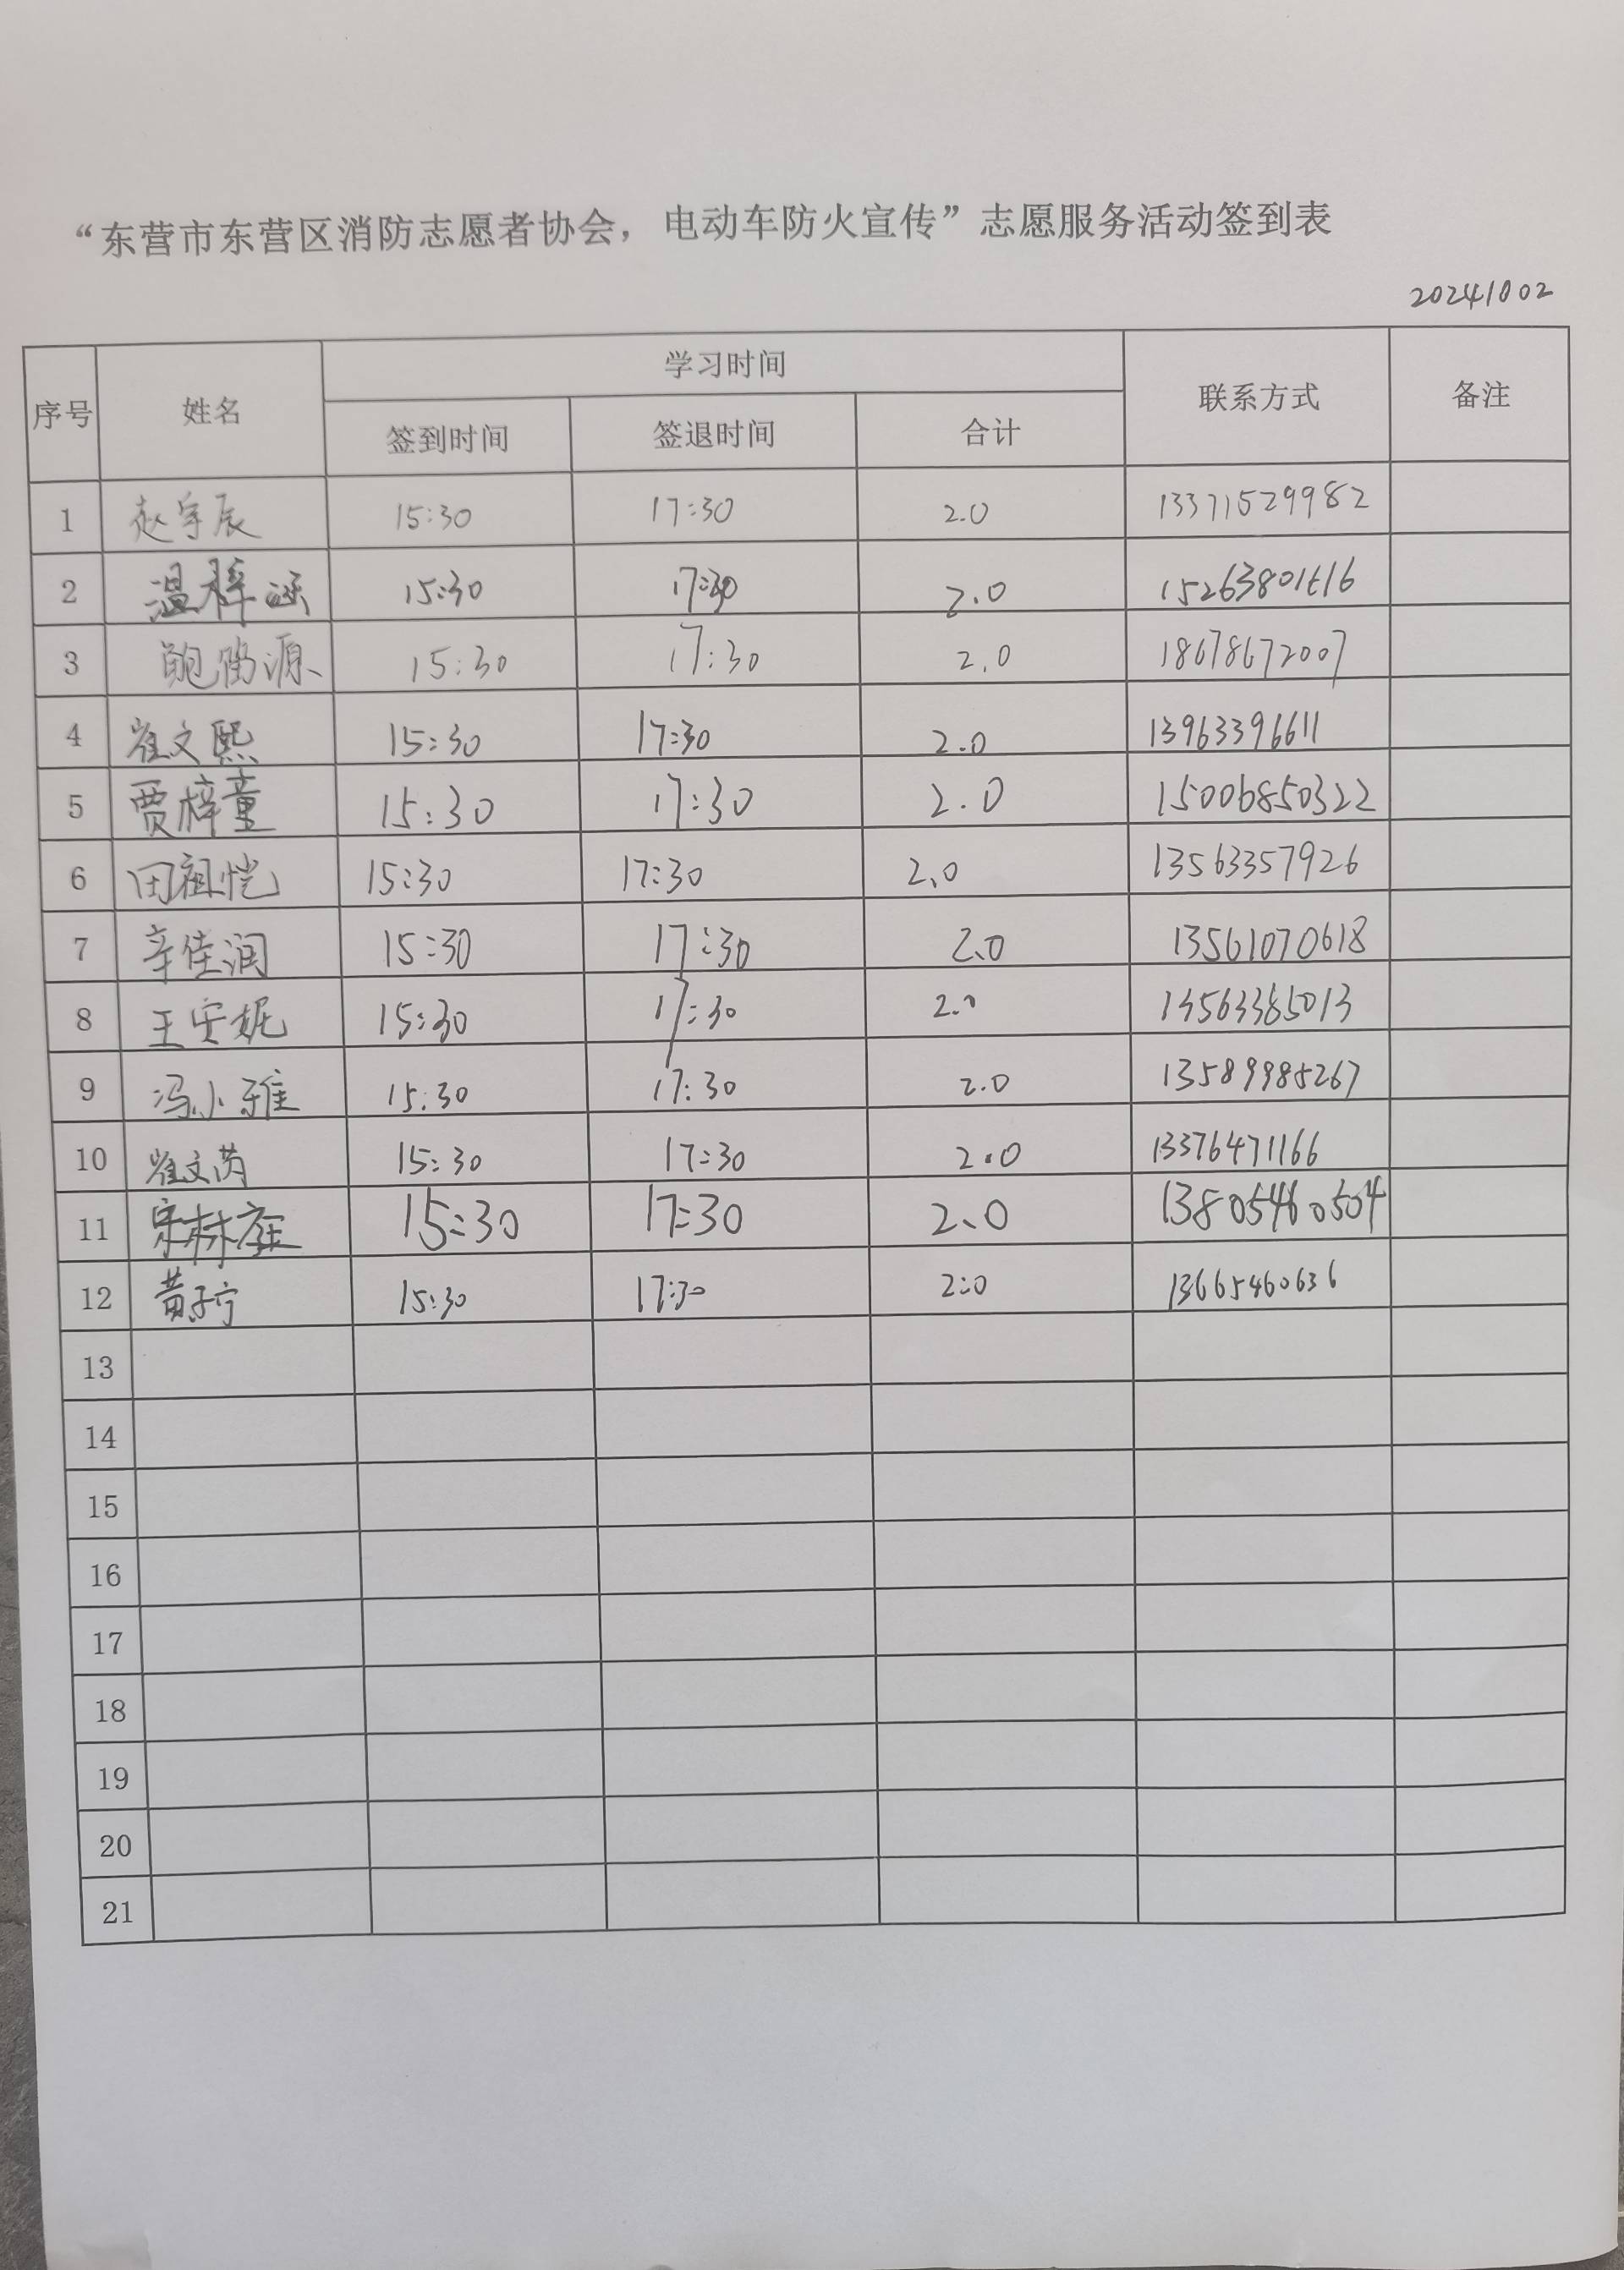 “东营市东营区消防志愿者协会，电动车防火宣传”志愿服务活动签到表
20241002
序号 姓名 学习时间 联系方式 备注
签到时间 签退时间 合计
1 赵宇辰 15:30 17:30 2.0 13371529982
2 温梓涵 15:30 17:30 2.0
3 鲍 源 15:30 17:30 2.0 18678672007
4 崔文熙 15:30 17:30 2.0 13963396611
5 贾梓童 15:30 17:30 2.0 15006850322
6 田祖恺 15:30 17:30 2.0 13563357926
7 辛佳润 15:30 17:30 2.0 13561070618
8 王安妮 15:30 17:30 2.0 13563385013
9 冯小雅 15:30 17:30 2.0 13589985267
10 崔文芮 15:30 17:30 2.0 13376471166
11 宋林 15:30 17:30 2.0 13805460504
12 黄子宁 15:30 17:30 2:0 13665460636
13
14
15
16
17
18
19
20
21